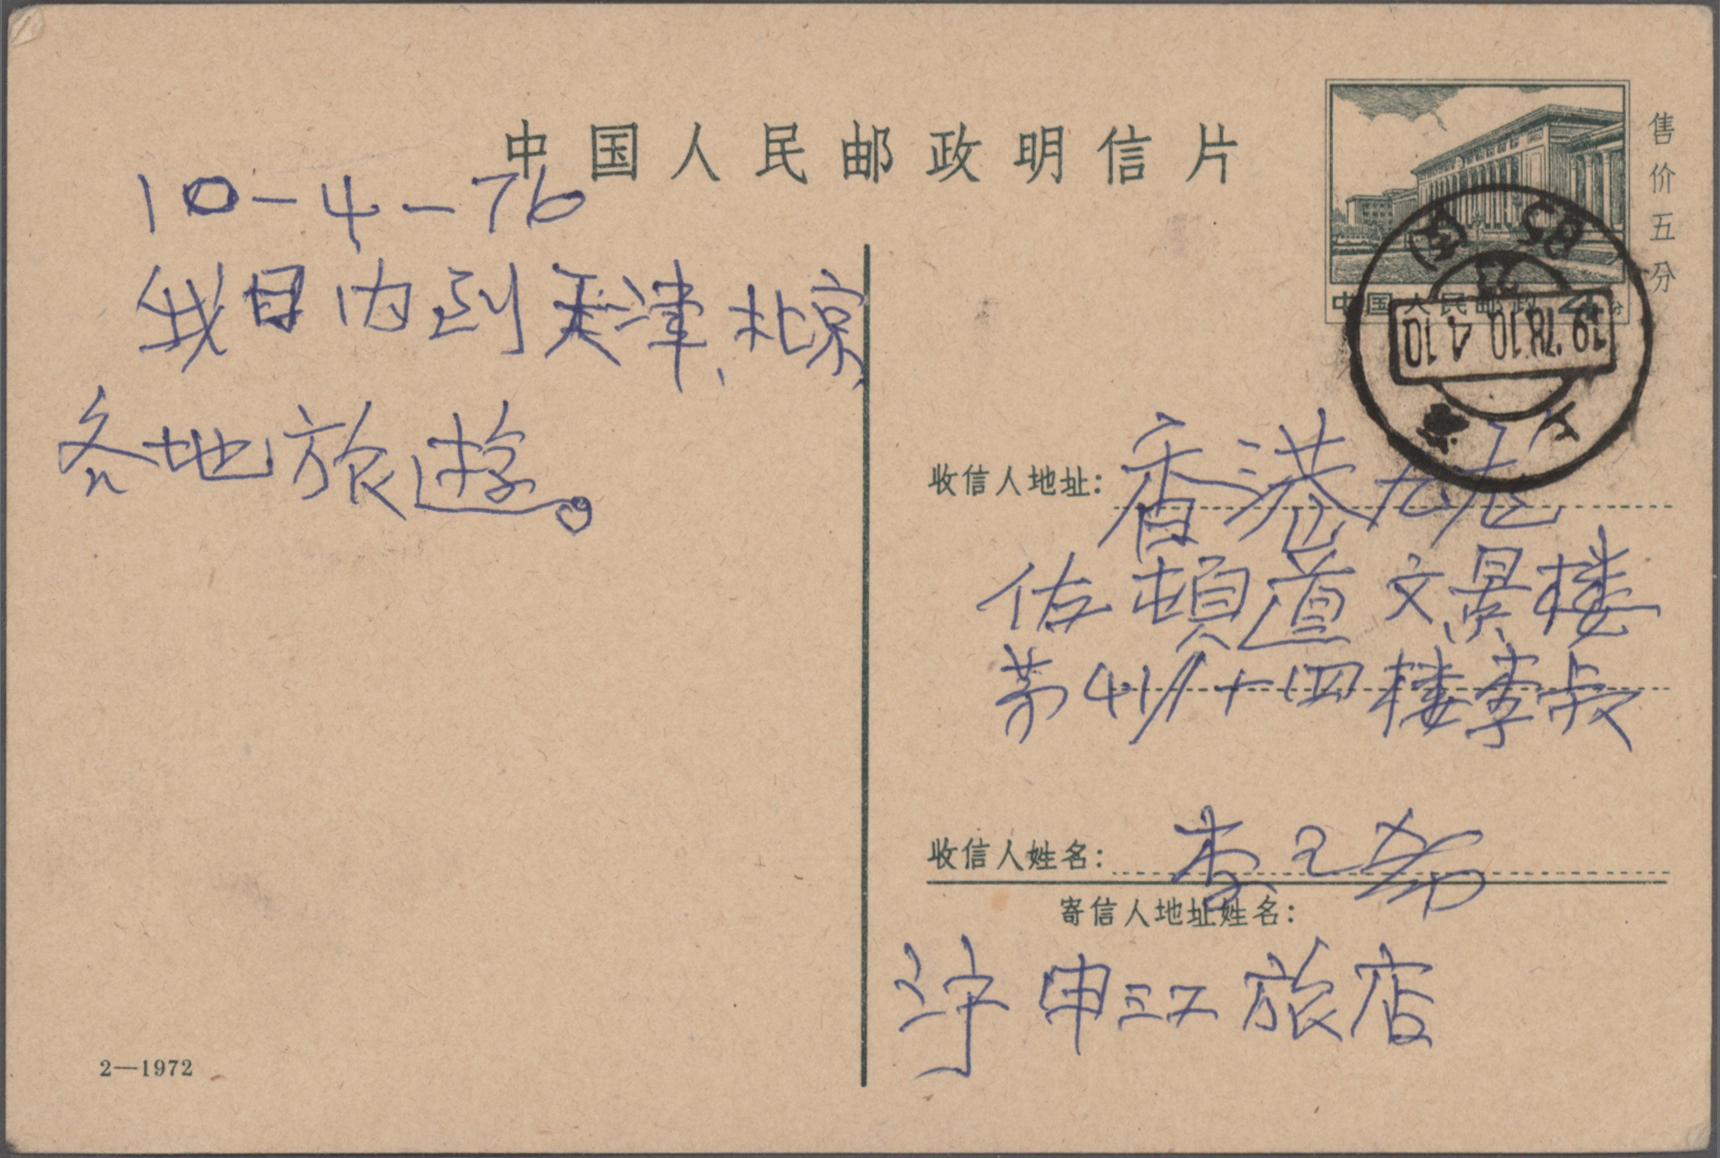 中国人民邮政明信片
售价五分
中国人民邮政 4分
10-4-76
我日内到天津、北京
各地旅遊。
收信人地址：香港九龙
佐頓道文景楼
第4座十四楼李叔
收信人姓名：李
寄信人地址姓名：
申江旅店
2—1972